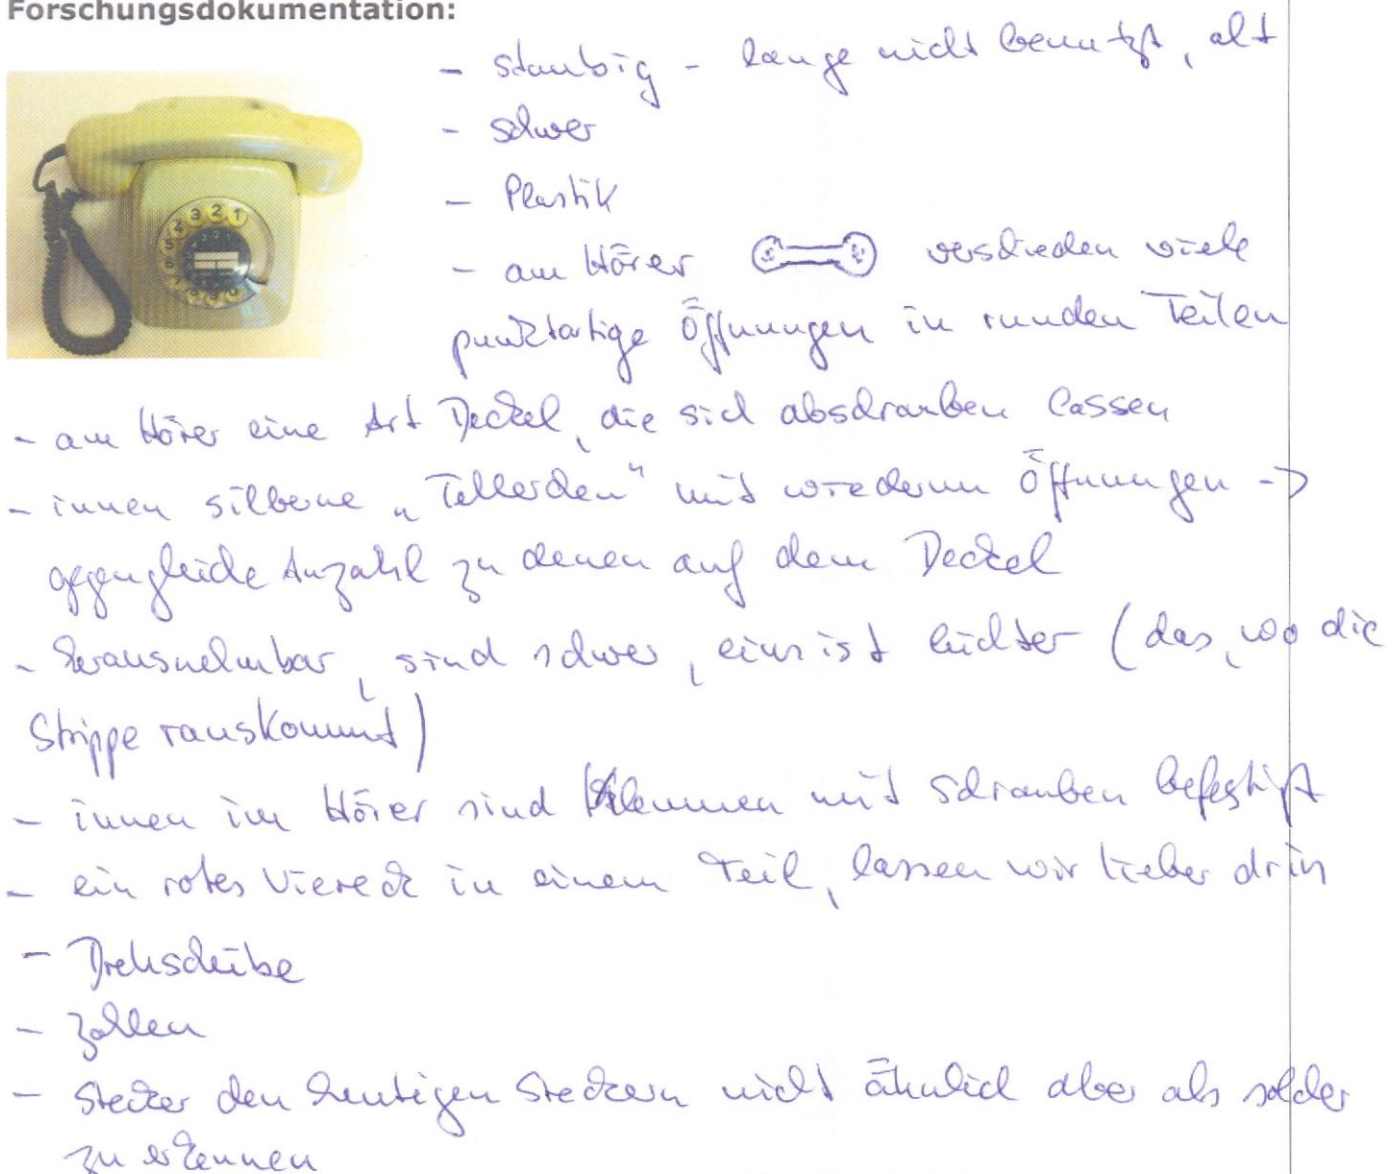 Forschungsdokumentation:
- staubig - lange nicht benutzt, alt
- schwer
- Plastik
- am Hörer verschieden viele
punktartige Öffnungen in runden Teilen
- am Hörer eine Art Deckel, die sich abschrauben lassen
- innen silberne „Tellerchen" mit wiederum Öffnungen ->
gegengleiche Anzahl zu denen auf dem Deckel
- herausnehmbar, sind schwer, eins ist leichter (das, wo die
Strippe rauskommt)
- innen im Hörer sind Klemmen mit Schrauben befestigt
- ein rotes Viereck in einem Teil, lassen wir lieber drin
- Drehscheibe
- Zahlen
- Stecker den heutigen Steckern nicht ähnlich aber als solcher
zu erkennen